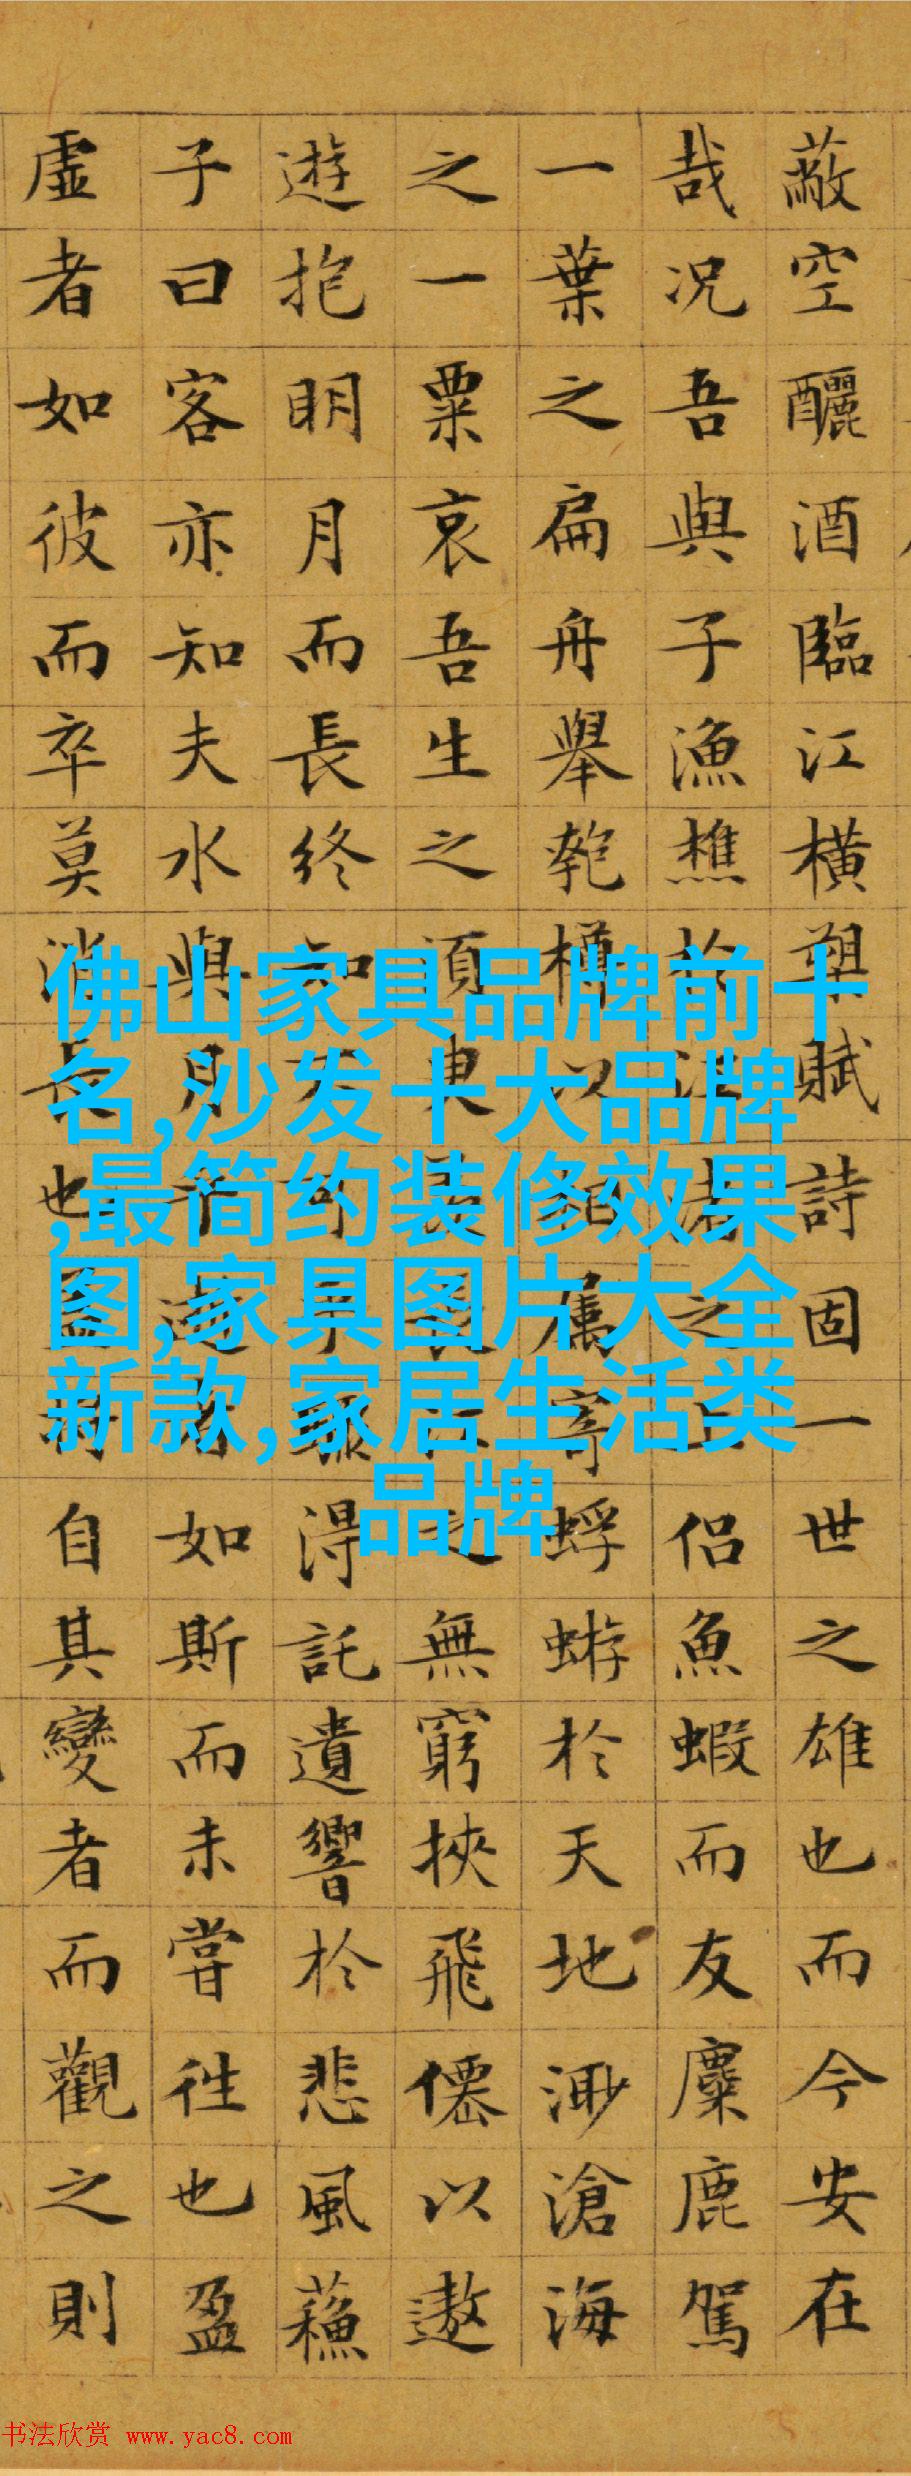 蔽空釃酒臨江橫槊賦詩固一世之雄也而今安在
哉况吾與子漁樵於江渚之上侶魚蝦而友麋鹿駕
一葉之扁舟舉匏樽以相属寄蜉蝣於天地渺滄海
之一粟哀吾生之須臾羨長江之無窮挾飛僊以遨
遊抱明月而長終知不可乎驟得託遺響於悲風蘓
子曰客亦知夫水與月乎逝者如斯而未嘗往也盈
虛者如彼而卒莫消長也盖將自其變者而觀之則
佛山家具品牌前十
名,沙发十大品牌
,最简约装修效果
图,家具图片大全
新款,家居生活类
品牌
书法欣赏 www.yac8.com